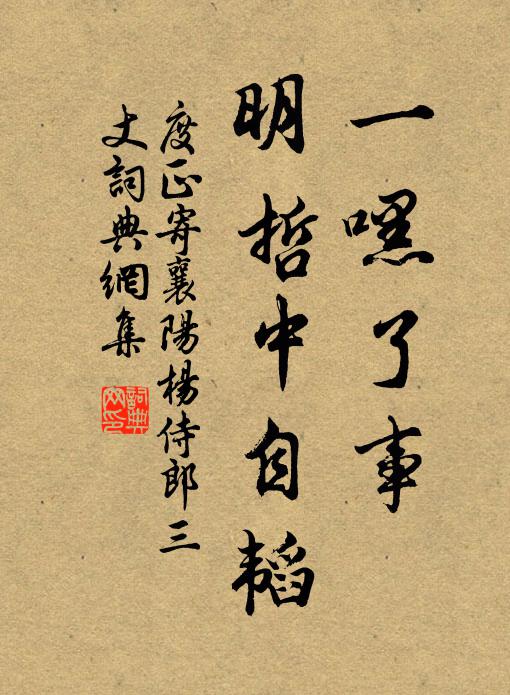 一嘿了事
明哲中自韬
度正寄襄陽楊侍郎三
丈詞典網集
詞典
网印